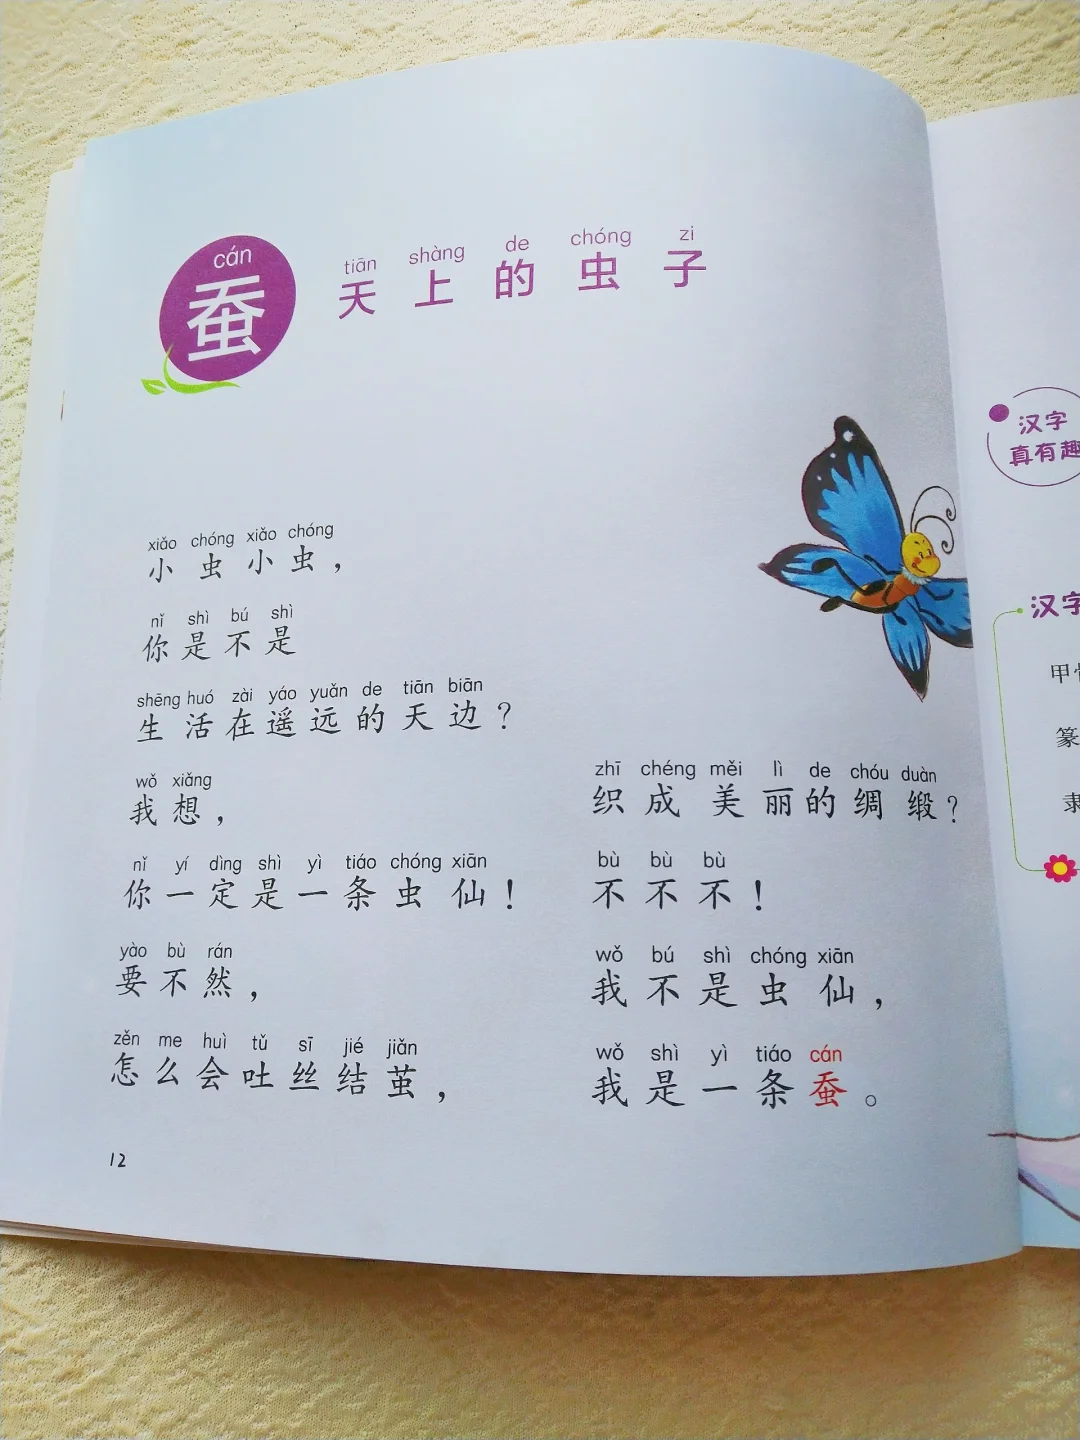 cán
蚕
tiān shàng de chóng zi
天上的虫子
xiǎo chóng xiǎo chóng
小虫小虫，
nǐ shì bú shì
你是不是
shēng huó zài yáo yuǎn de tiān biān
生活在遥远的天边？
wǒ xiǎng
我想，
nǐ yí dìng shì yì tiáo chóng xiān
你一定是一条虫仙！
yào bù rán
要不然，
zěn me huì tǔ sī jié jiǎn
怎么会吐丝结茧，
zhī chéng měi lì de chóu duàn
织成美丽的绸缎？
bù bù bù
不不不！
wǒ bú shì chóng xiān
我不是虫仙，
wǒ shì yì tiáo cán
我是一条蚕。
12
汉字
真有趣
汉字
甲
篆
隶